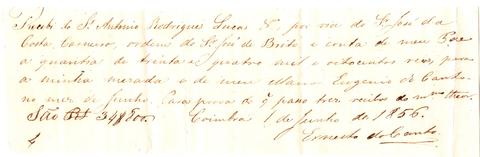 Recebi do Sr. Antonio Rodrigues Lucas Nº por via do Sr. José da
Costa Carneiro, ordem do Sr. José de Brito e conta de meu Pae
a quantia de trinta e quatro mil e oitocentos reis, para
a minha mezada e de meu mano Eugenio do Canto
no mez de Junho. Para prova de q passo tres recibos do mmo theor.
São 34$800. Coimbra 1 de Junho de 1856.
Ernesto do Canto.